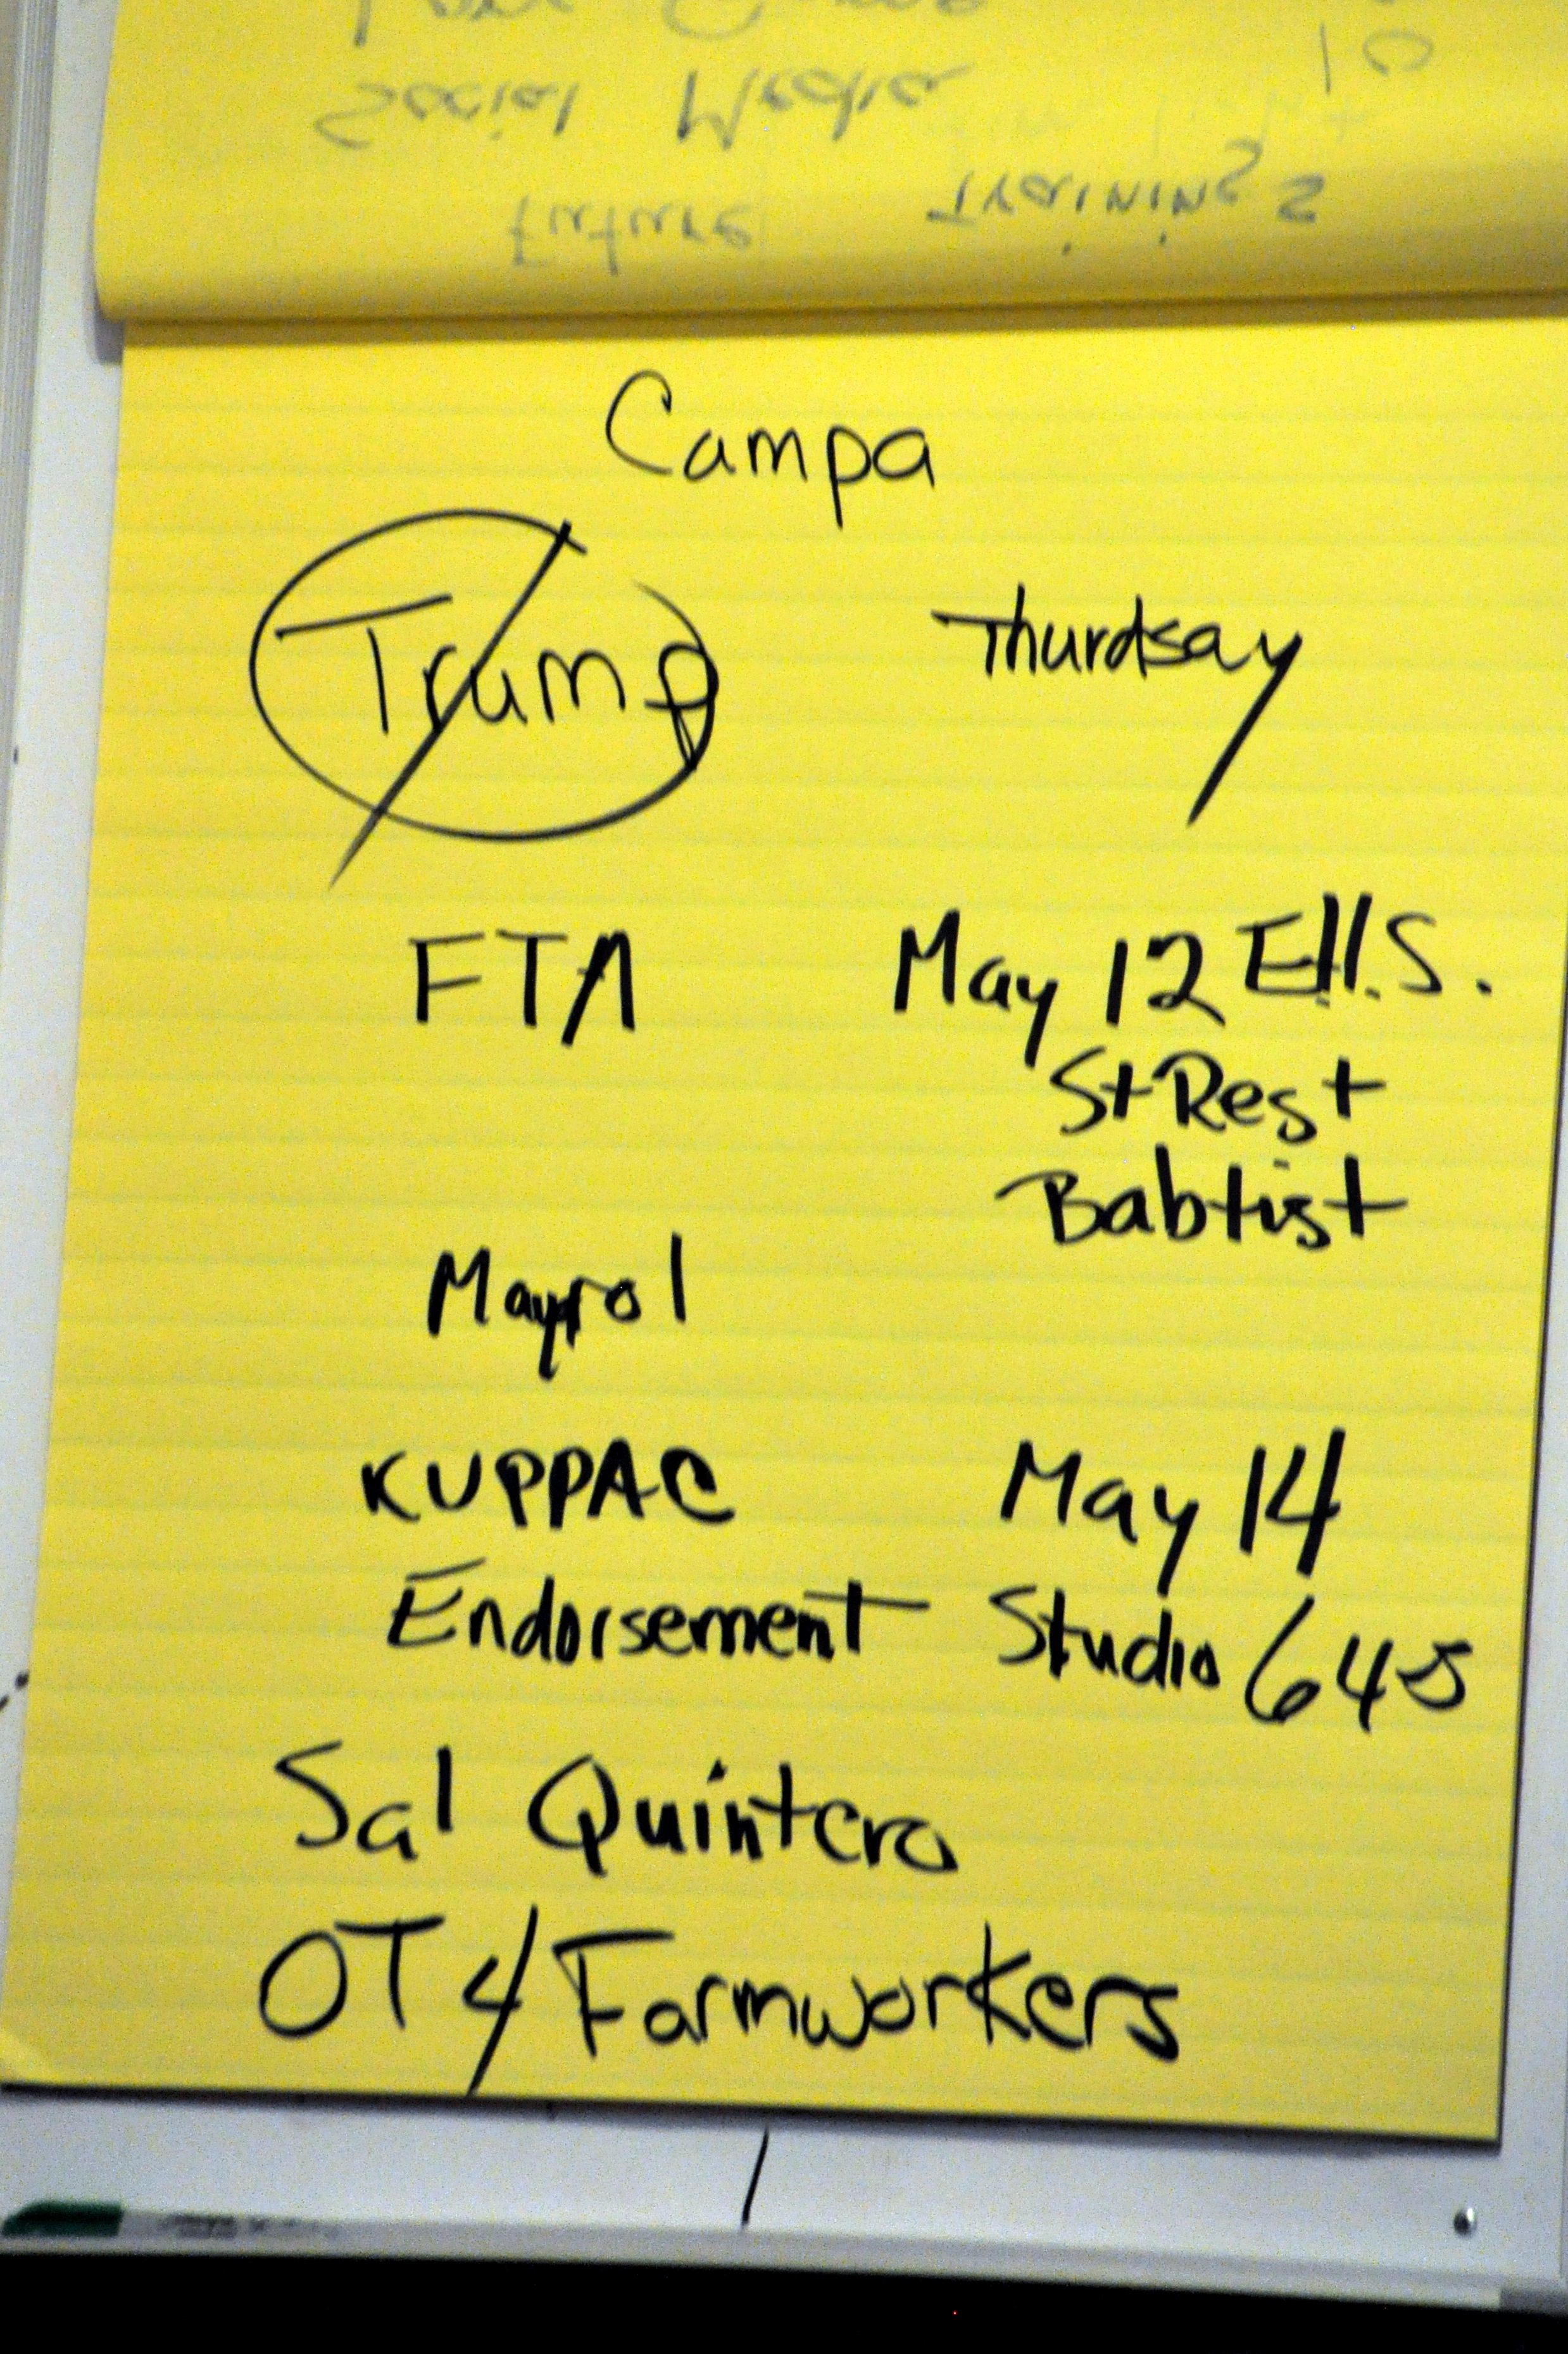 Social Media
Trainings
future
Campa
Trump Thurdsay
FTA May 12 E.H.S.
St Rest
Babtist
Mayrol
KUPPAC May 14
Endorsement Studio 645
Sal Quintero
OT 4 Farmworkers